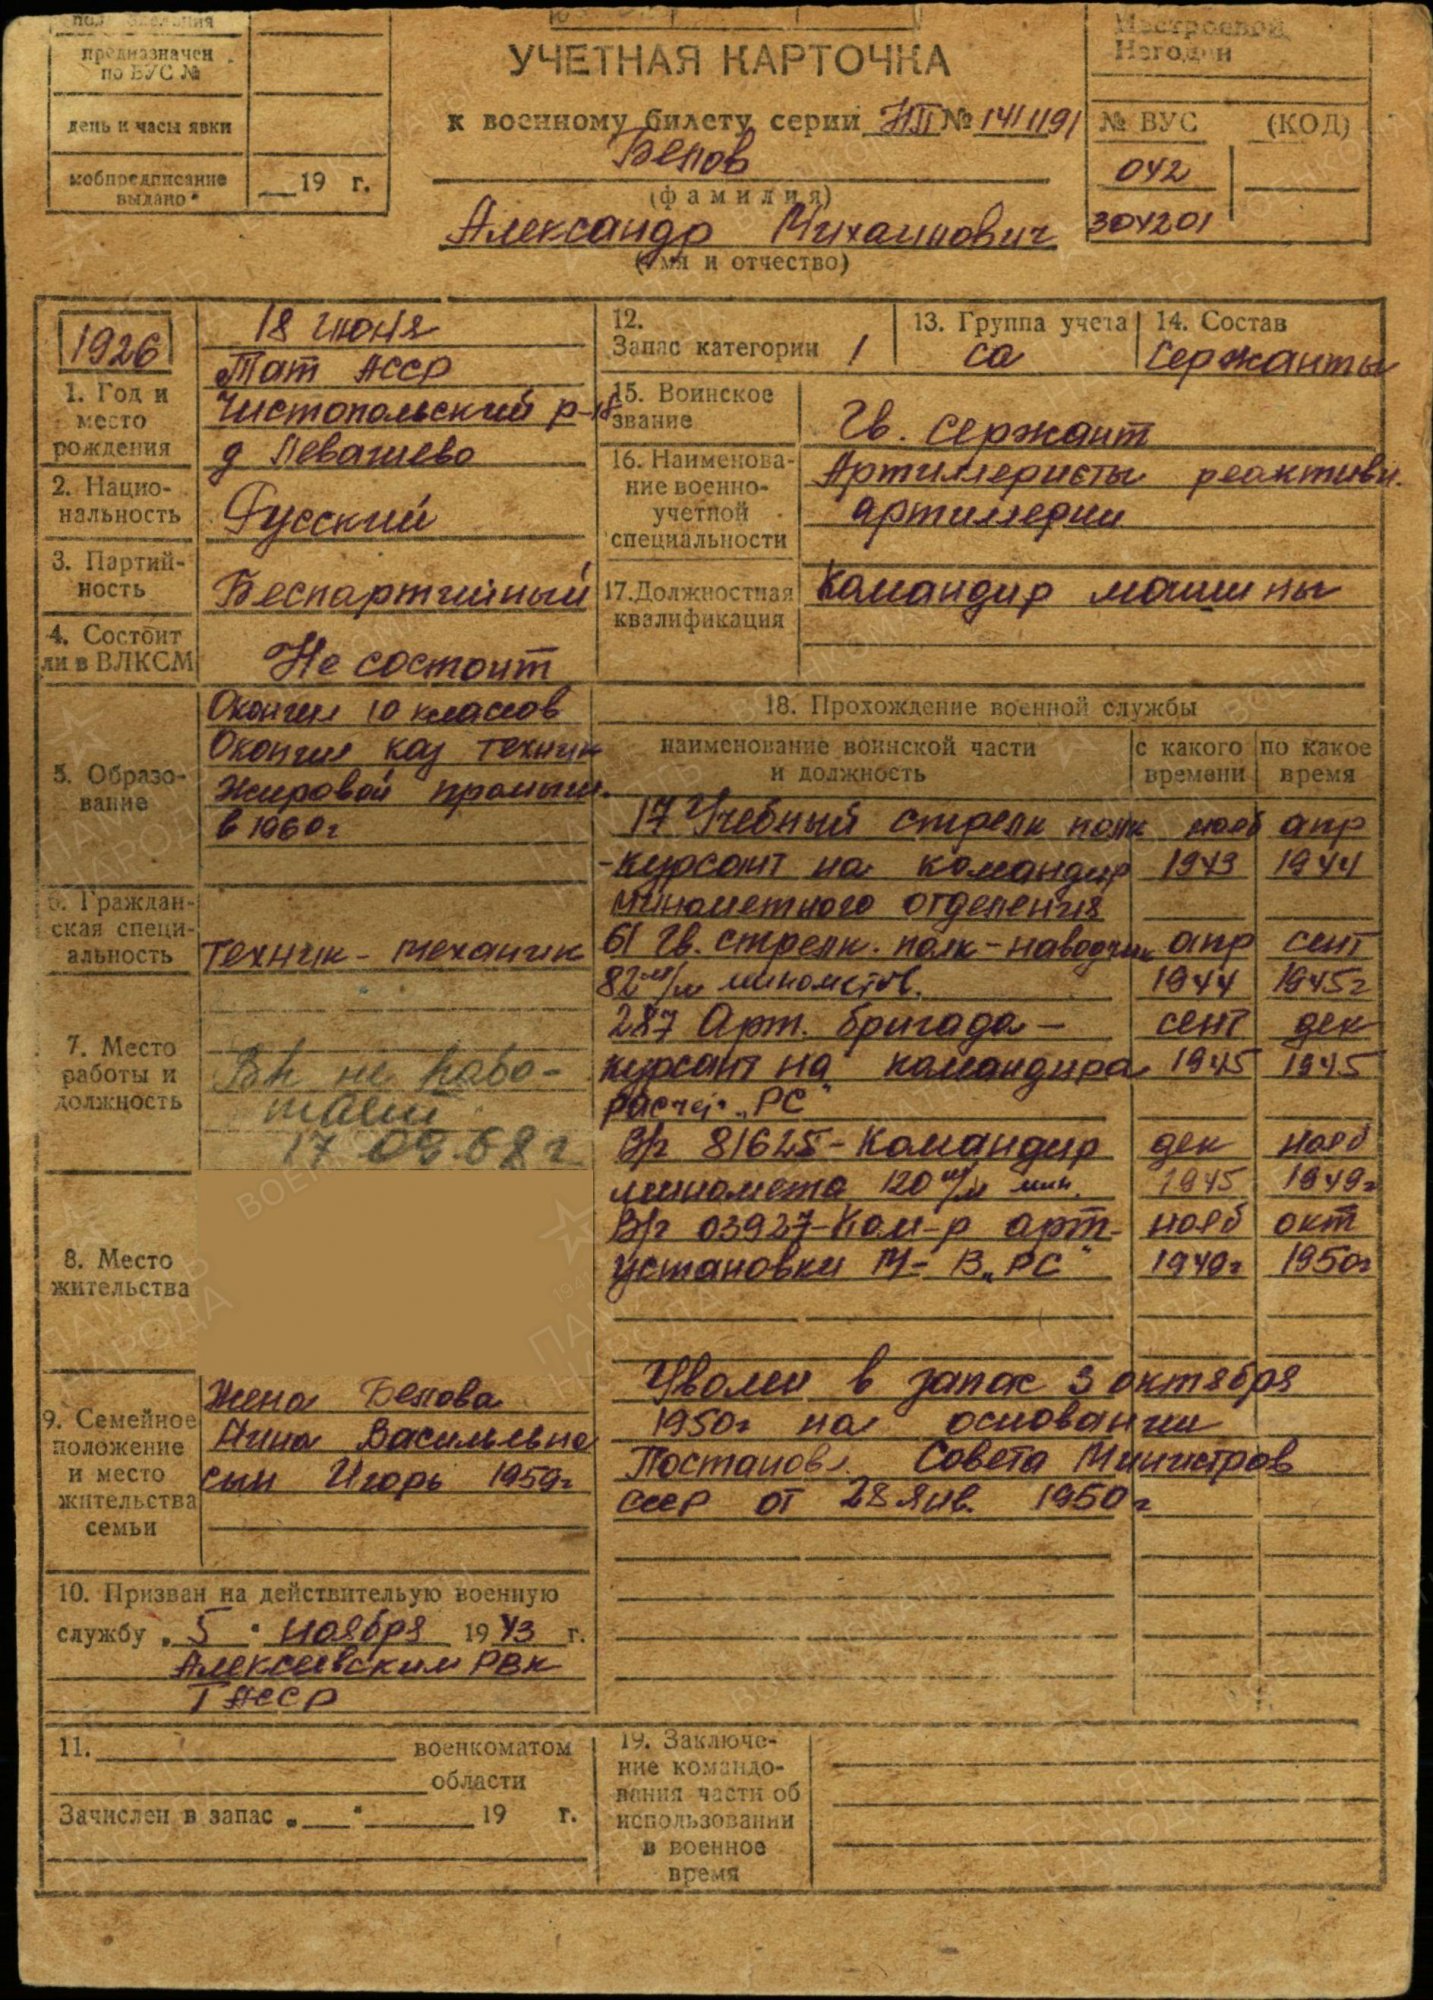 предназначен
по ВУС №
день и часы явки
мобпредписание
выдано
19 г.
УЧЕТНАЯ КАРТОЧКА
к военному билету серии НП № 1411191
Белов
(фамилия)
Александр Михайлович
(имя и отчество)
Нестроевой
Негоден
№ ВУС (КОД)
042
304201
1926
1. Год и
место
рождения
18 июня
Тат АССР
Чистопольский р-н
д Левашево
2. Нацио-
нальность
Русский
3. Партий-
ность
Беспартийный
4. Состоит
ли в ВЛКСМ
Не состоит
5. Образо-
вание
Окончил 10 классов
Окончил каз техник
Жировой промыш.
в 1960г
6. Граждан-
ская специ-
альность
техник-механик
7. Место
работы и
должность
Вр не рабо-
тает
17 09.68г
8. Место
жительства
9. Семейное
положение
и место
жительства
семьи
Жена Белова
Анна Васильевна
сын Игорь 1959г
10. Призван на действительую военную
службу „5" ноября 1943 г.
Алексеевским РВК
ТАССР
11. военкоматом
области
Зачислен в запас „ " 19 г.
12.
Запас категории 1
13. Группа учета
СА
14. Состав
Сержанты
15. Воинское
звание
Гв. сержант
16. Наименова-
ние военно-
учетной
специальности
Артиллеристы реактивн.
артиллерии
17. Должностная
квалификация
Командир машины
18. Прохождение военной службы
наименование воинской части
и должность
с какого
времени
по какое
время
17 Учебный стрелк полк нояб апр
-курсант на командир 1943 1944
минометного отделения
61 Гв. стрелк. полк-наводчик апр сент
82 м/м минометов. 1944 1945г
287 Арт. бригада - сент дек
курсант на командира 1945 1945
расчет „РС"
В/ч 81625-Командир дек нояб
миномета 120 м/м мин. 1945 1949г
В/ч 03927-Ком-р арт- нояб окт
установки М-13 „РС" 1949г 1950г
Уволен в запас 3 октября
1950г на основании
Постанов. Совета Министров
СССР от 28 янв. 1950г
19. Заключе-
ние командо-
вания части об
использовании
в военное
время